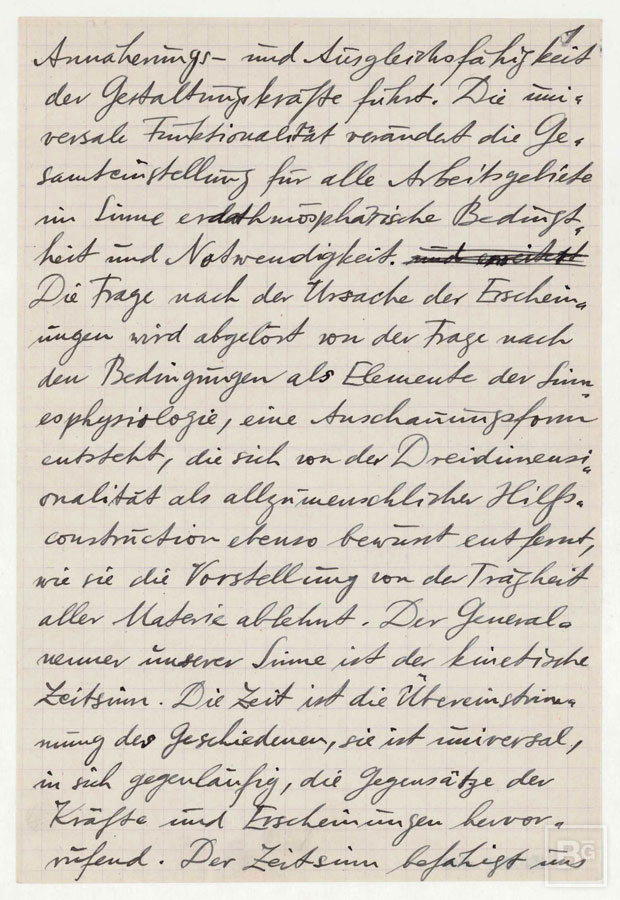 Annäherungs- und Ausgleichsfähigkeit
der Gestaltungskräfte führt. Die uni-
versale Funktionalität verändert die Ge-
samteinstellung für alle Arbeitsgebiete
im Sinne erdathmosphärische Bedingt-
heit und Notwendigkeit. und
Die Frage nach der Ursache der Erschein-
ungen wird abgelöst von der Frage nach
den Bedingungen als Elemente der Sinn-
esphysiologie, eine Anschauungsform
entsteht, die sich von der Dreidimensi-
onalität als allzumenschlicher Hilfs-
construction ebenso bewusst entfernt,
wie sie die Vorstellung von der Trägheit
aller Materie ablehnt. Der General-
nenner unserer Sinne ist der kinetische
Zeitsinn. Die Zeit ist die Übereinstim-
mung des Geschiedenen, sie ist universal,
in sich gegenläufig, die Gegensätze der
Kräfte und Erscheinungen hervor-
rufend. Der Zeitsinn befähigt uns
BG